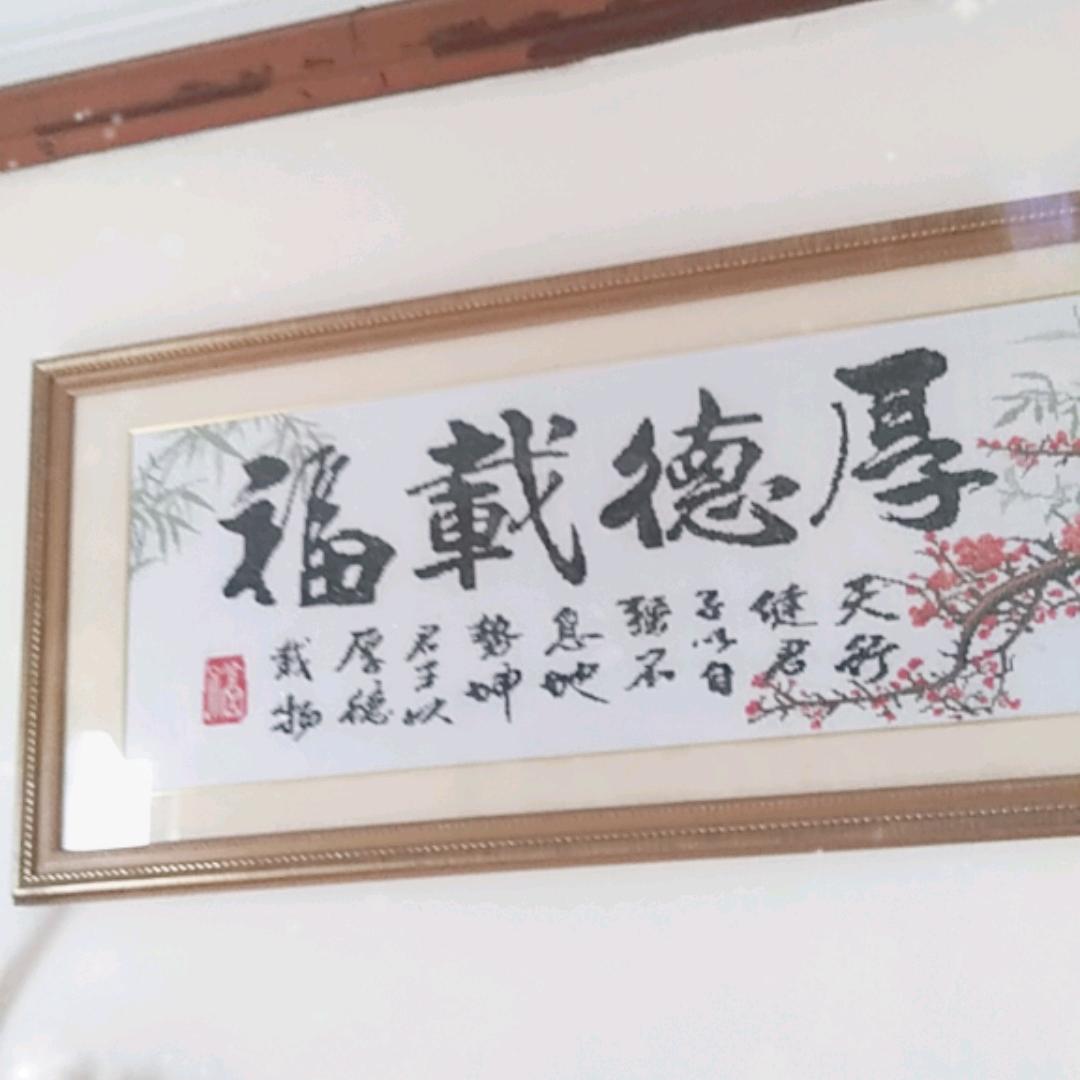 厚德載福
天行
健君
子以自
强不
息地
勢坤
君子以
厚德
載物